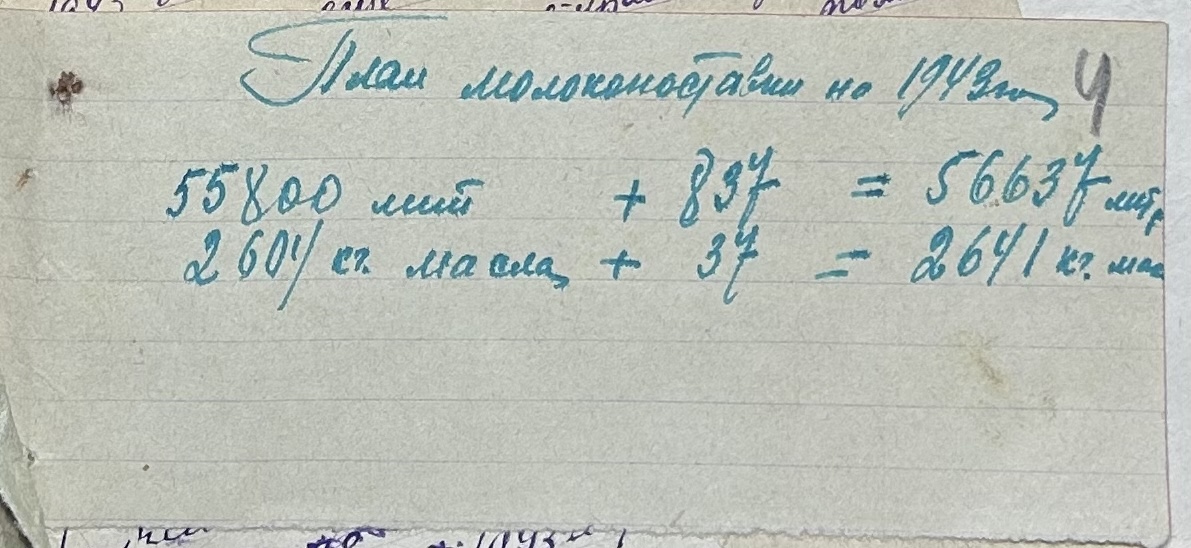 План молокопоставки на 1943 год 4
55800 лит + 837 = 56637 литр
2604 кг. масла + 37 = 2641 кг. мас